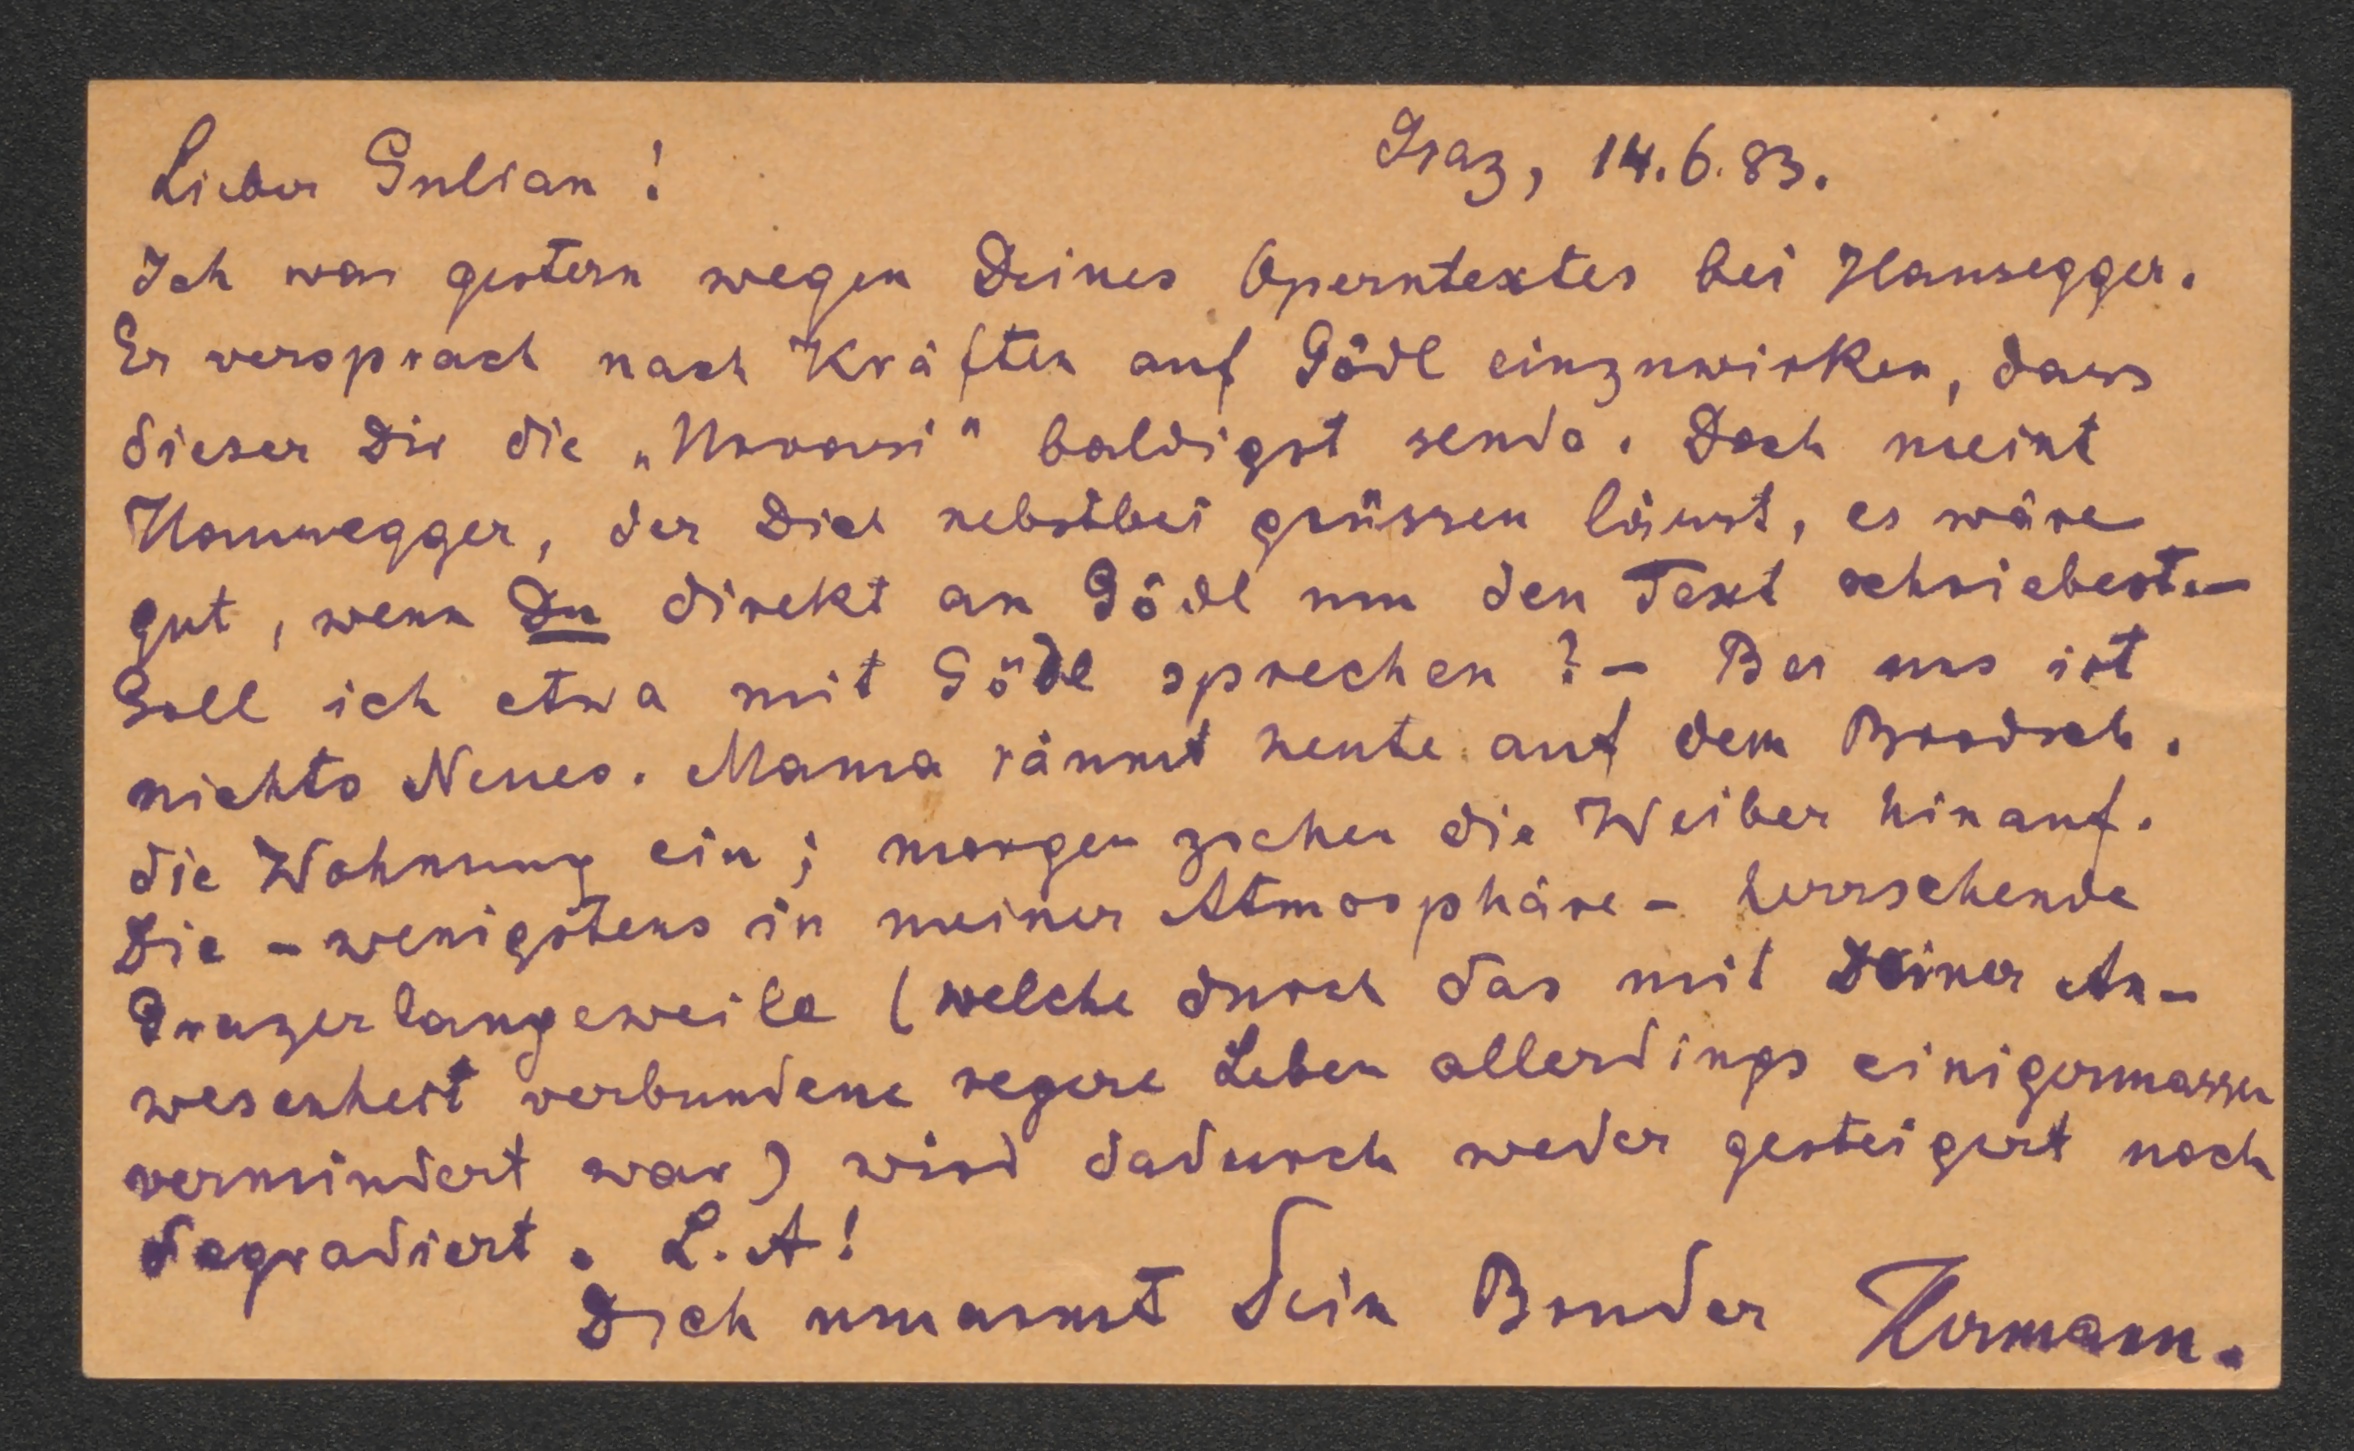 Lieber Gulian!
Graz, 14.6.83.
Ich war gestern wegen Deines Operntextes bei Hausegger.
Er versprach nach Kräften auf Gödl einzuwirken, dass
dieser Dir die „ " baldigst sende. Doch meint
Hausegger, der Dich nebstbei grüssen lässt, es wäre
gut, wenn Du direkt an Gödl um den Text schriebest.–
Soll ich etwa mit Gödl sprechen? – Bei uns ist
nichts Neues. Mama räumt heute auf dem
die Wohnung ein; morgen ziehen die Weiber hinauf.
Die – wenigstens in meiner Atmosphäre – herrschende
Grazerlangeweile (welche durch das mit Deiner An-
wesenheit verbundene regere Leben allerdings einigermassen
vermindert war) wird dadurch weder gesteigert noch
degradiert. L. A!
Dich umarmt Dein Bruder Hermann.